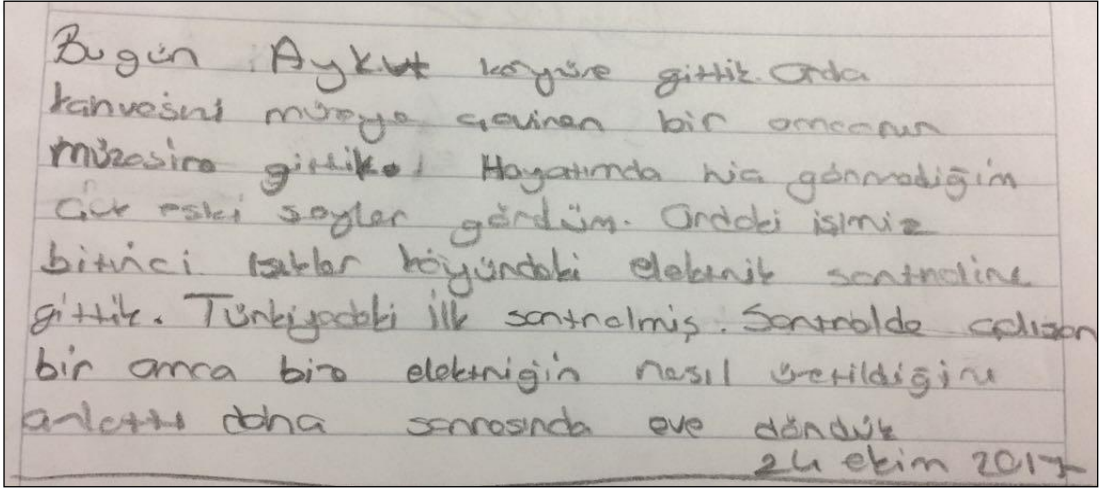 Bugün Aykut köyüne gittik. Orda
kahvesini müzeye çeviren bir amcanın
müzesine gittik. Hayatımda hiç görmediğim
çok eski şeyler gördüm. Ordaki işimiz
bitinci köyündeki elektrik santraline
gittik. Türkiyedeki ilk santralmiş. Santralde çalışan
bir amca bize elektriğin nasıl üretildiğini
anlattı daha sonrasında eve döndük
24 ekim 2017